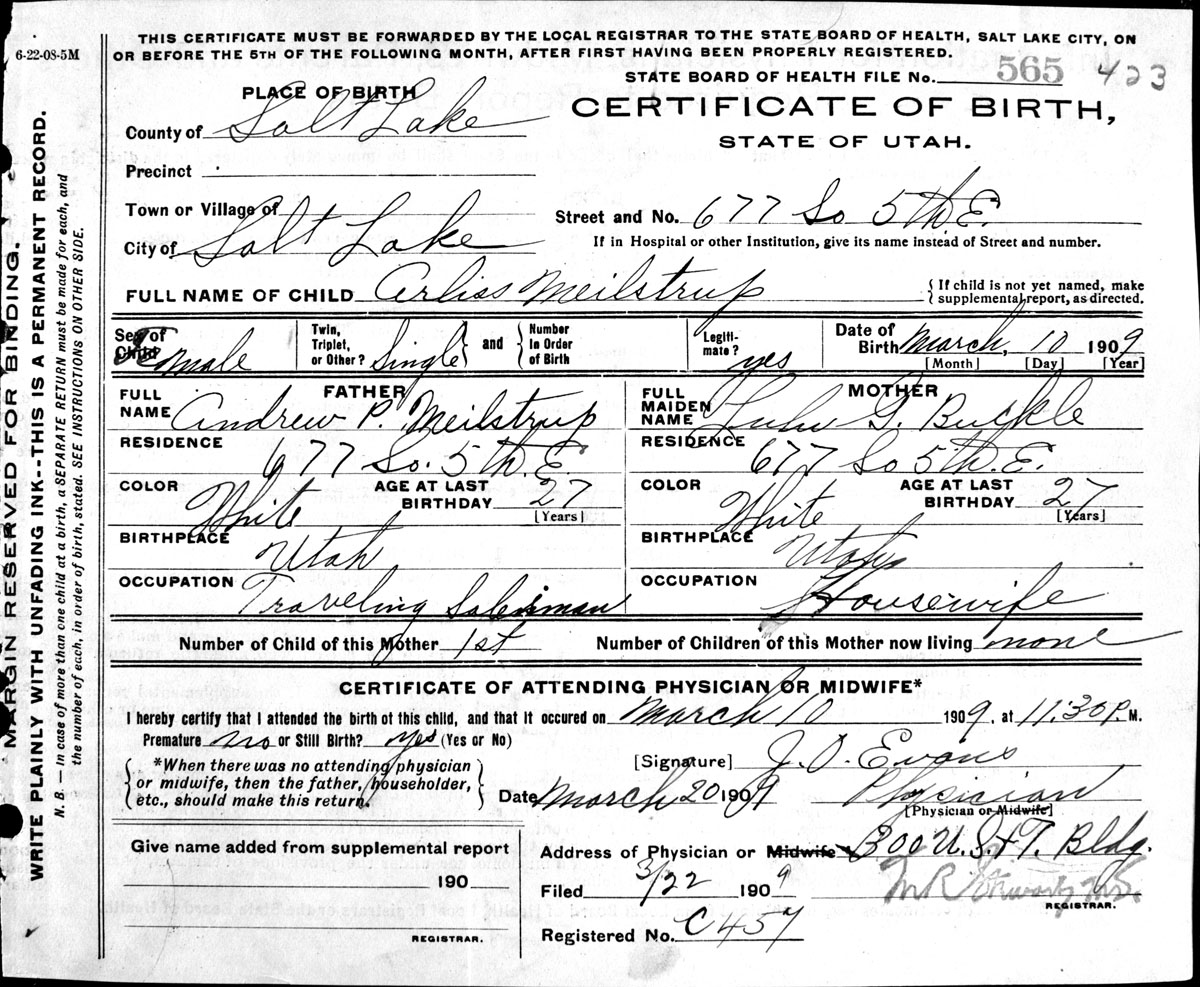 THIS CERTIFICATE MUST BE FORWARDED BY THE LOCAL REGISTRAR TO THE STATE BOARD OF HEALTH, SALT LAKE CITY, ON
OR BEFORE THE 5TH OF THE FOLLOWING MONTH, AFTER FIRST HAVING BEEN PROPERLY REGISTERED.
6-22-08-5M
STATE BOARD OF HEALTH FILE No. 565 423
PLACE OF BIRTH
CERTIFICATE OF BIRTH,
STATE OF UTAH.
County of Salt Lake
Precinct
Town or Village of
Street and No. 677 So 5th. E.
City of Salt Lake
If in Hospital or other Institution, give its name instead of Street and number.
FULL NAME OF CHILD Arliss Meilstrup
{If child is not yet named, make supplemental report, as directed.
Sex of Child? Female
Twin, Triplet, or Other? Single
and
Number In Order of Birth
Legitimate? yes
Date of Birth March, 10 1909
[Month] [Day] [Year]
FATHER
FULL NAME Andrew P. Meilstrup
MOTHER
FULL MAIDEN NAME Lulu G. Buckle
RESIDENCE 677 So. 5th. E.
RESIDENCE 677 So 5th. E.
COLOR White AGE AT LAST BIRTHDAY 27 [Years]
COLOR White AGE AT LAST BIRTHDAY 27 [Years]
BIRTHPLACE Utah
BIRTHPLACE Utah
OCCUPATION Traveling Salesman
OCCUPATION Housewife
Number of Child of this Mother 1st
Number of Children of this Mother now living none
CERTIFICATE OF ATTENDING PHYSICIAN OR MIDWIFE*
I hereby certify that I attended the birth of this child, and that it occured on March 10 1909, at 11.30 P. M.
Premature no or Still Birth? yes (Yes or No)
*When there was no attending physician
or midwife, then the father, householder,
etc., should make this return.
[Signature] J. O. Evans
Date March 20 1909
Physician
[Physician or Midwife]
Give name added from supplemental report
190
REGISTRAR.
Address of Physician or Midwife 300 U. S. & T. Bldg.
Filed 3/22 1909
REGISTRAR.
Registered No. C 457
MARGIN RESERVED FOR BINDING.
WRITE PLAINLY WITH UNFADING INK--THIS IS A PERMANENT RECORD.
N. B. — In case of more than one child at a birth, a SEPARATE RETURN must be made for each, and
the number of each, in order of birth, stated. SEE INSTRUCTIONS ON OTHER SIDE.